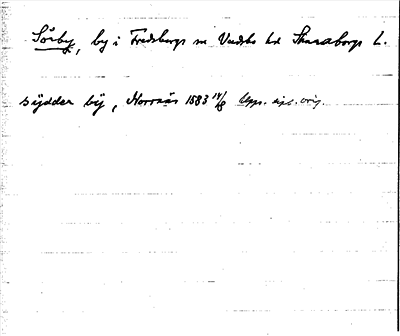 Sörby, by i Fredsbergs sn Vadsbo hd Skaraborgs L.
sÿdder bÿ, Norrnäs 1583 14/6 Upps. epl. orig.